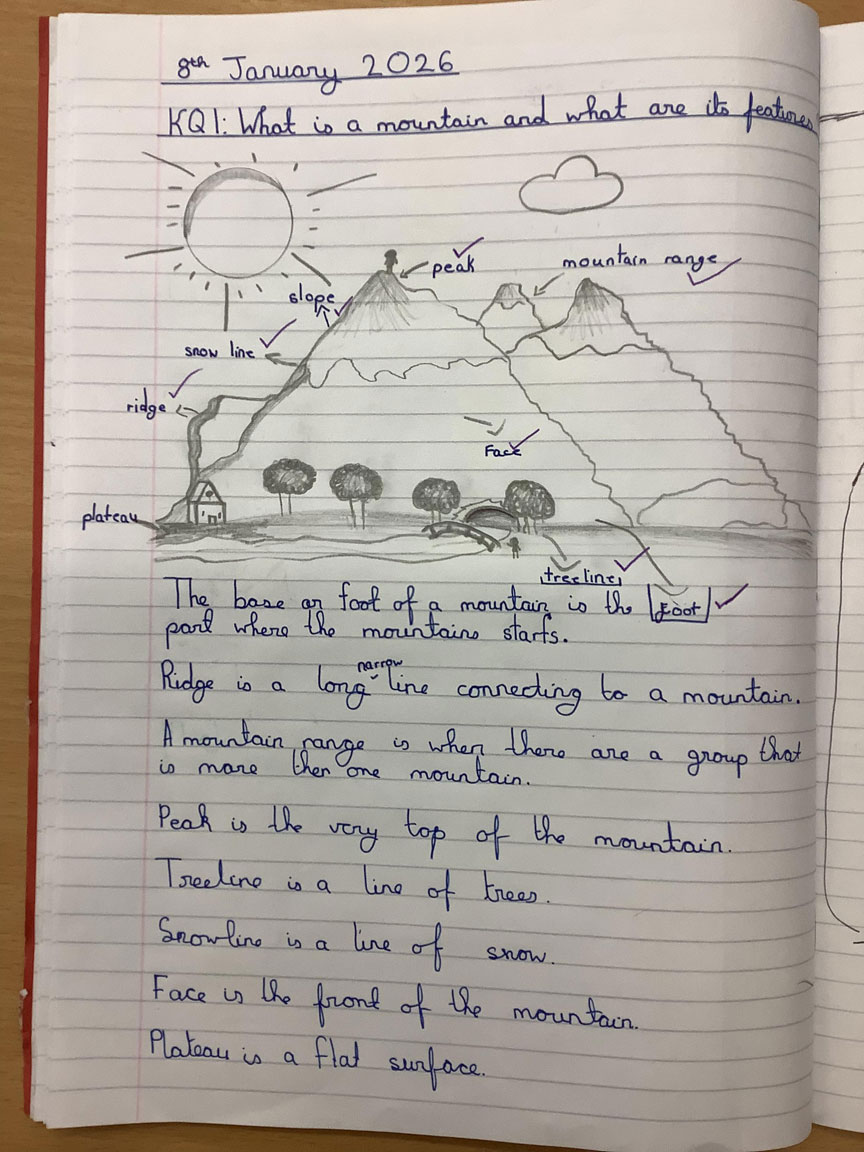 8th January 2026
KQ1: What is a mountain and what are its features
peak
mountain range
slope
snow line
ridge
Face
plateau
treeline
foot
The base or foot of a mountain is the
part where the mountains starts.
narrow
Ridge is a long line connecting to a mountain.
A mountain range is when there are a group that
is more then one mountain.
Peak is the very top of the mountain.
Treeline is a line of trees.
Snowline is a line of snow.
Face is the front of the mountain.
Plateau is a flat surface.